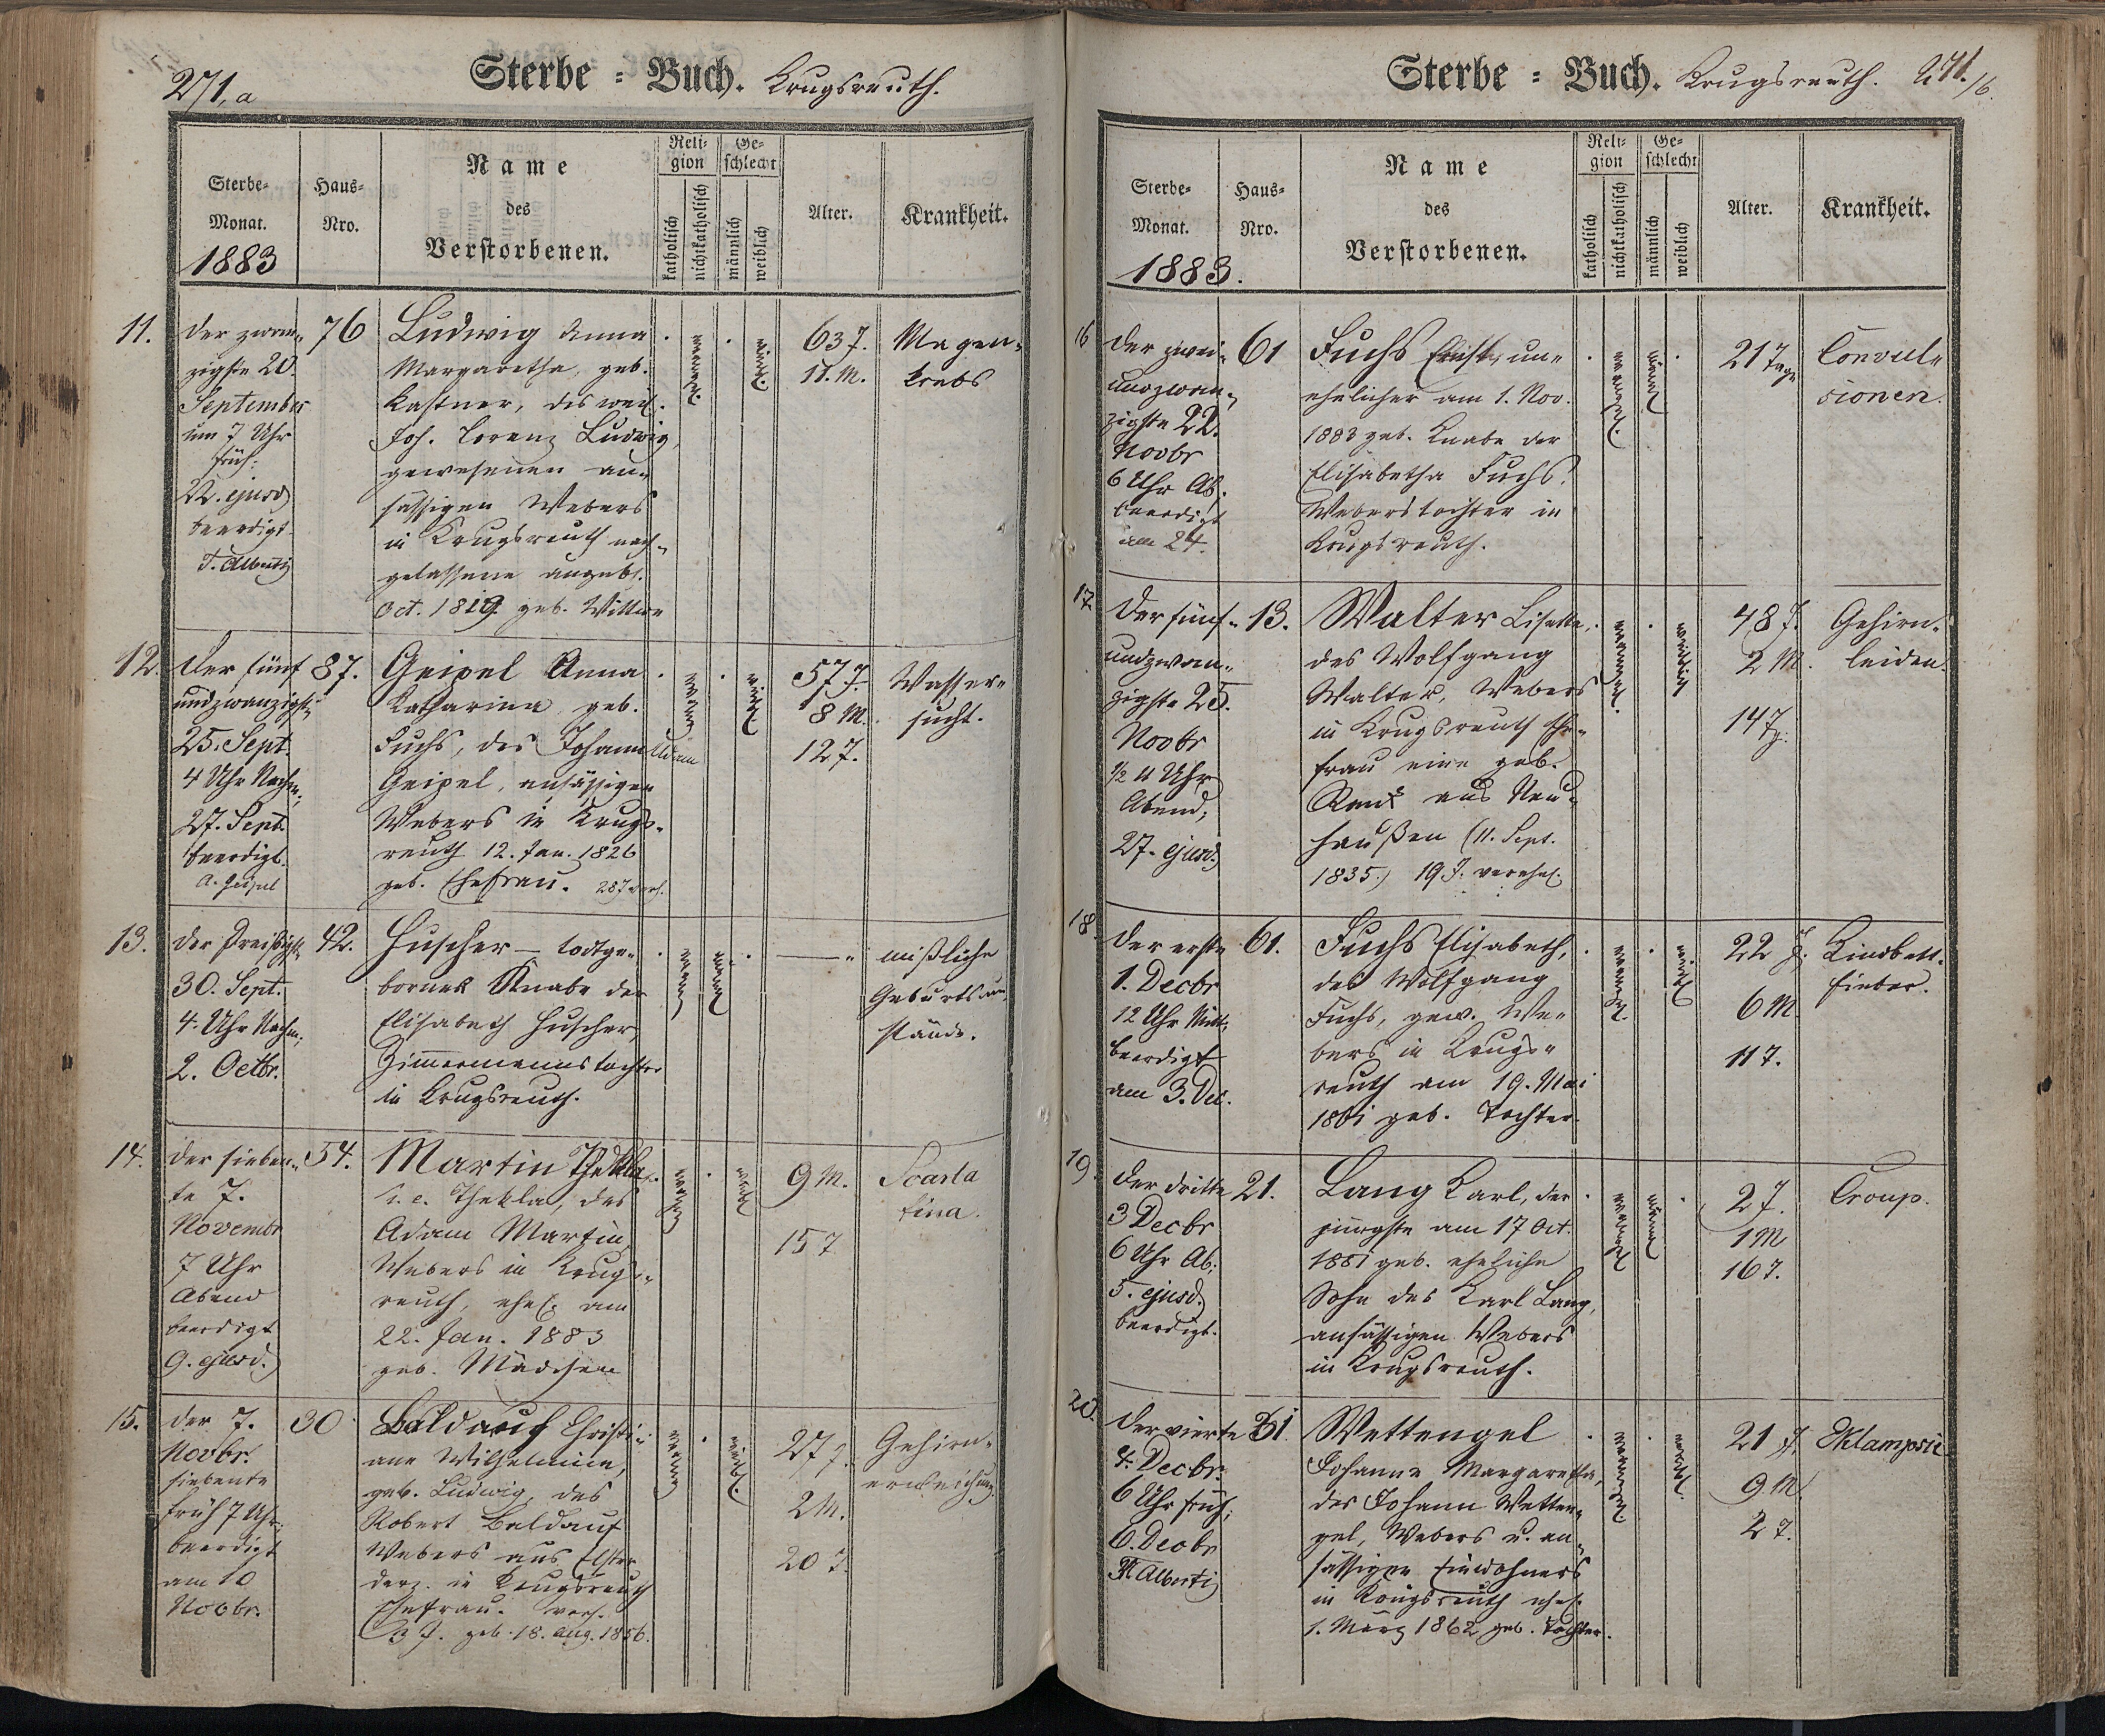 271. a
Sterbe-Buch. Krugsreuth.
Sterbe-
Monat.
1883
Haus-
Nro.
Name
des
Verstorbenen.
Reli-
gion
katholisch
nichtkatholisch
Ge-
schlecht
männlich
weiblich
Alter.
Krankheit.
11.
der zwan-
zigste 20.
September
um 7 Uhr
früh.
22. ejusd
beerdigt
T. Alberti
76
Ludwig Anna
Margaretha, geb.
Kastner, des weil.
Joh. Lorenz Ludwig,
gewesenen an-
sässigen Webers
in Krugsreuth nach-
gelassene
Oct. 1819 geb. Wittwe
63 J.
11. M.
Magen-
krebs
12.
der fünf
undzwanzigste
25. Sept.
4 Uhr Nachm.
27. Sept.
beerdigt.
A. Geipel
87.
Geipel Anna
Katharina geb.
Fuchs, des Johann Adam
Geipel, ansässigen
Webers in Krugs-
reuth 12. Jan. 1826
geb. Ehefrau. 28 J. verh.
57 J.
8 M.
12 T.
Wasser-
sucht.
13.
der dreißigste
30. Sept.
4. Uhr Nachm.
2. Octbr.
42.
Huscher – todtge-
borner Knabe der
Elisabeth Huscher,
Zimmermannstochter
in Krugsreuth.
mißliche
Geburtsum
stände.
14.
der sieben-
te 7.
Novembr
7 Uhr
Abend
beerdigt
9. ejusd.
54.
Martin Thekla
i. e. Thekla, des
Adam Martin
Webers in Krugs-
reuth, ehel. am
22. Jan. 1883
geb. Mädchen
9 M.
15 T
Scarla
tina.
15.
der 7.
Novbr.
siebente
früh 7 Uhr.
beerdigt
am 10
Novbr.
30
Baldauf Christi-
ane Wilhelmine,
geb. Ludwig, des
Robert Baldauf
Webers aus Elster
derz. in Krugsreuth
Ehefrau. verh.
3 J. geb. 18. Aug. 1856.
27 J.
2 M.
20 T.
Gehirn-
erweichung
Sterbe-Buch. Krugsreuth. 271./b.
Sterbe-
Monat.
1883.
Haus-
Nro.
Name
des
Verstorbenen.
Reli-
gion
katholisch
nichtkatholisch
Ge-
schlecht
männlich
weiblich
Alter.
Krankheit.
16
der zwei-
undzwan-
zigste 22.
Novbr
6 Uhr Ab.
beerdigt
am 24.
61
Fuchs un-
ehelicher am 1. Nov.
1883 geb. Knabe der
Elisabetha Fuchs,
Weberstochter in
Krugsreuth.
21 Tage
Convul-
sionen.
17
der fünf-
undzwan-
zigste 25.
Novbr
Abend,
27. ejusd.
13.
Walter Lisette,
des Wolfgang
Walter, Webers
in Krugsreuth Ehe-
frau eine geb.
aus Neu-
haußen (11. Sept.
1835.) 19 J. verehel.
48 J.
2 M.
14 T.
Gehirn-
leiden.
18
der erste
1. Decbr
12 Uhr Mitt.
beerdigt
am 3. Dec.
61.
Fuchs Elisabeth,
des Wolfgang
Fuchs, gew. We-
bers in Krugs-
reuth am 19. Mai
1861 geb. Tochter.
22 J.
6 M.
11 T.
Kindbett-
fieber.
19.
der dritte
3 Decbr
6 Uhr Ab.
5. ejusd.
beerdigt.
21.
Lang Karl, der
jüngste am 17 Oct.
1881 geb. eheliche
Sohn des Karl Lang,
ansässigen Webers
in Krugsreuth.
2 J.
1 M
16 T.
Croup.
20.
der vierte
4. Decbr.
6 Uhr früh,
6. Decbr
Alberti
31
Wettengel
Johanne Margaretha,
des Johann Wetten-
gel, Webers u. an-
sässigen Einwohners
in Krugsreuth ehel.
1. März 1862 geb. Tochter.
21 J.
9 M.
2 T.
Eklampsie